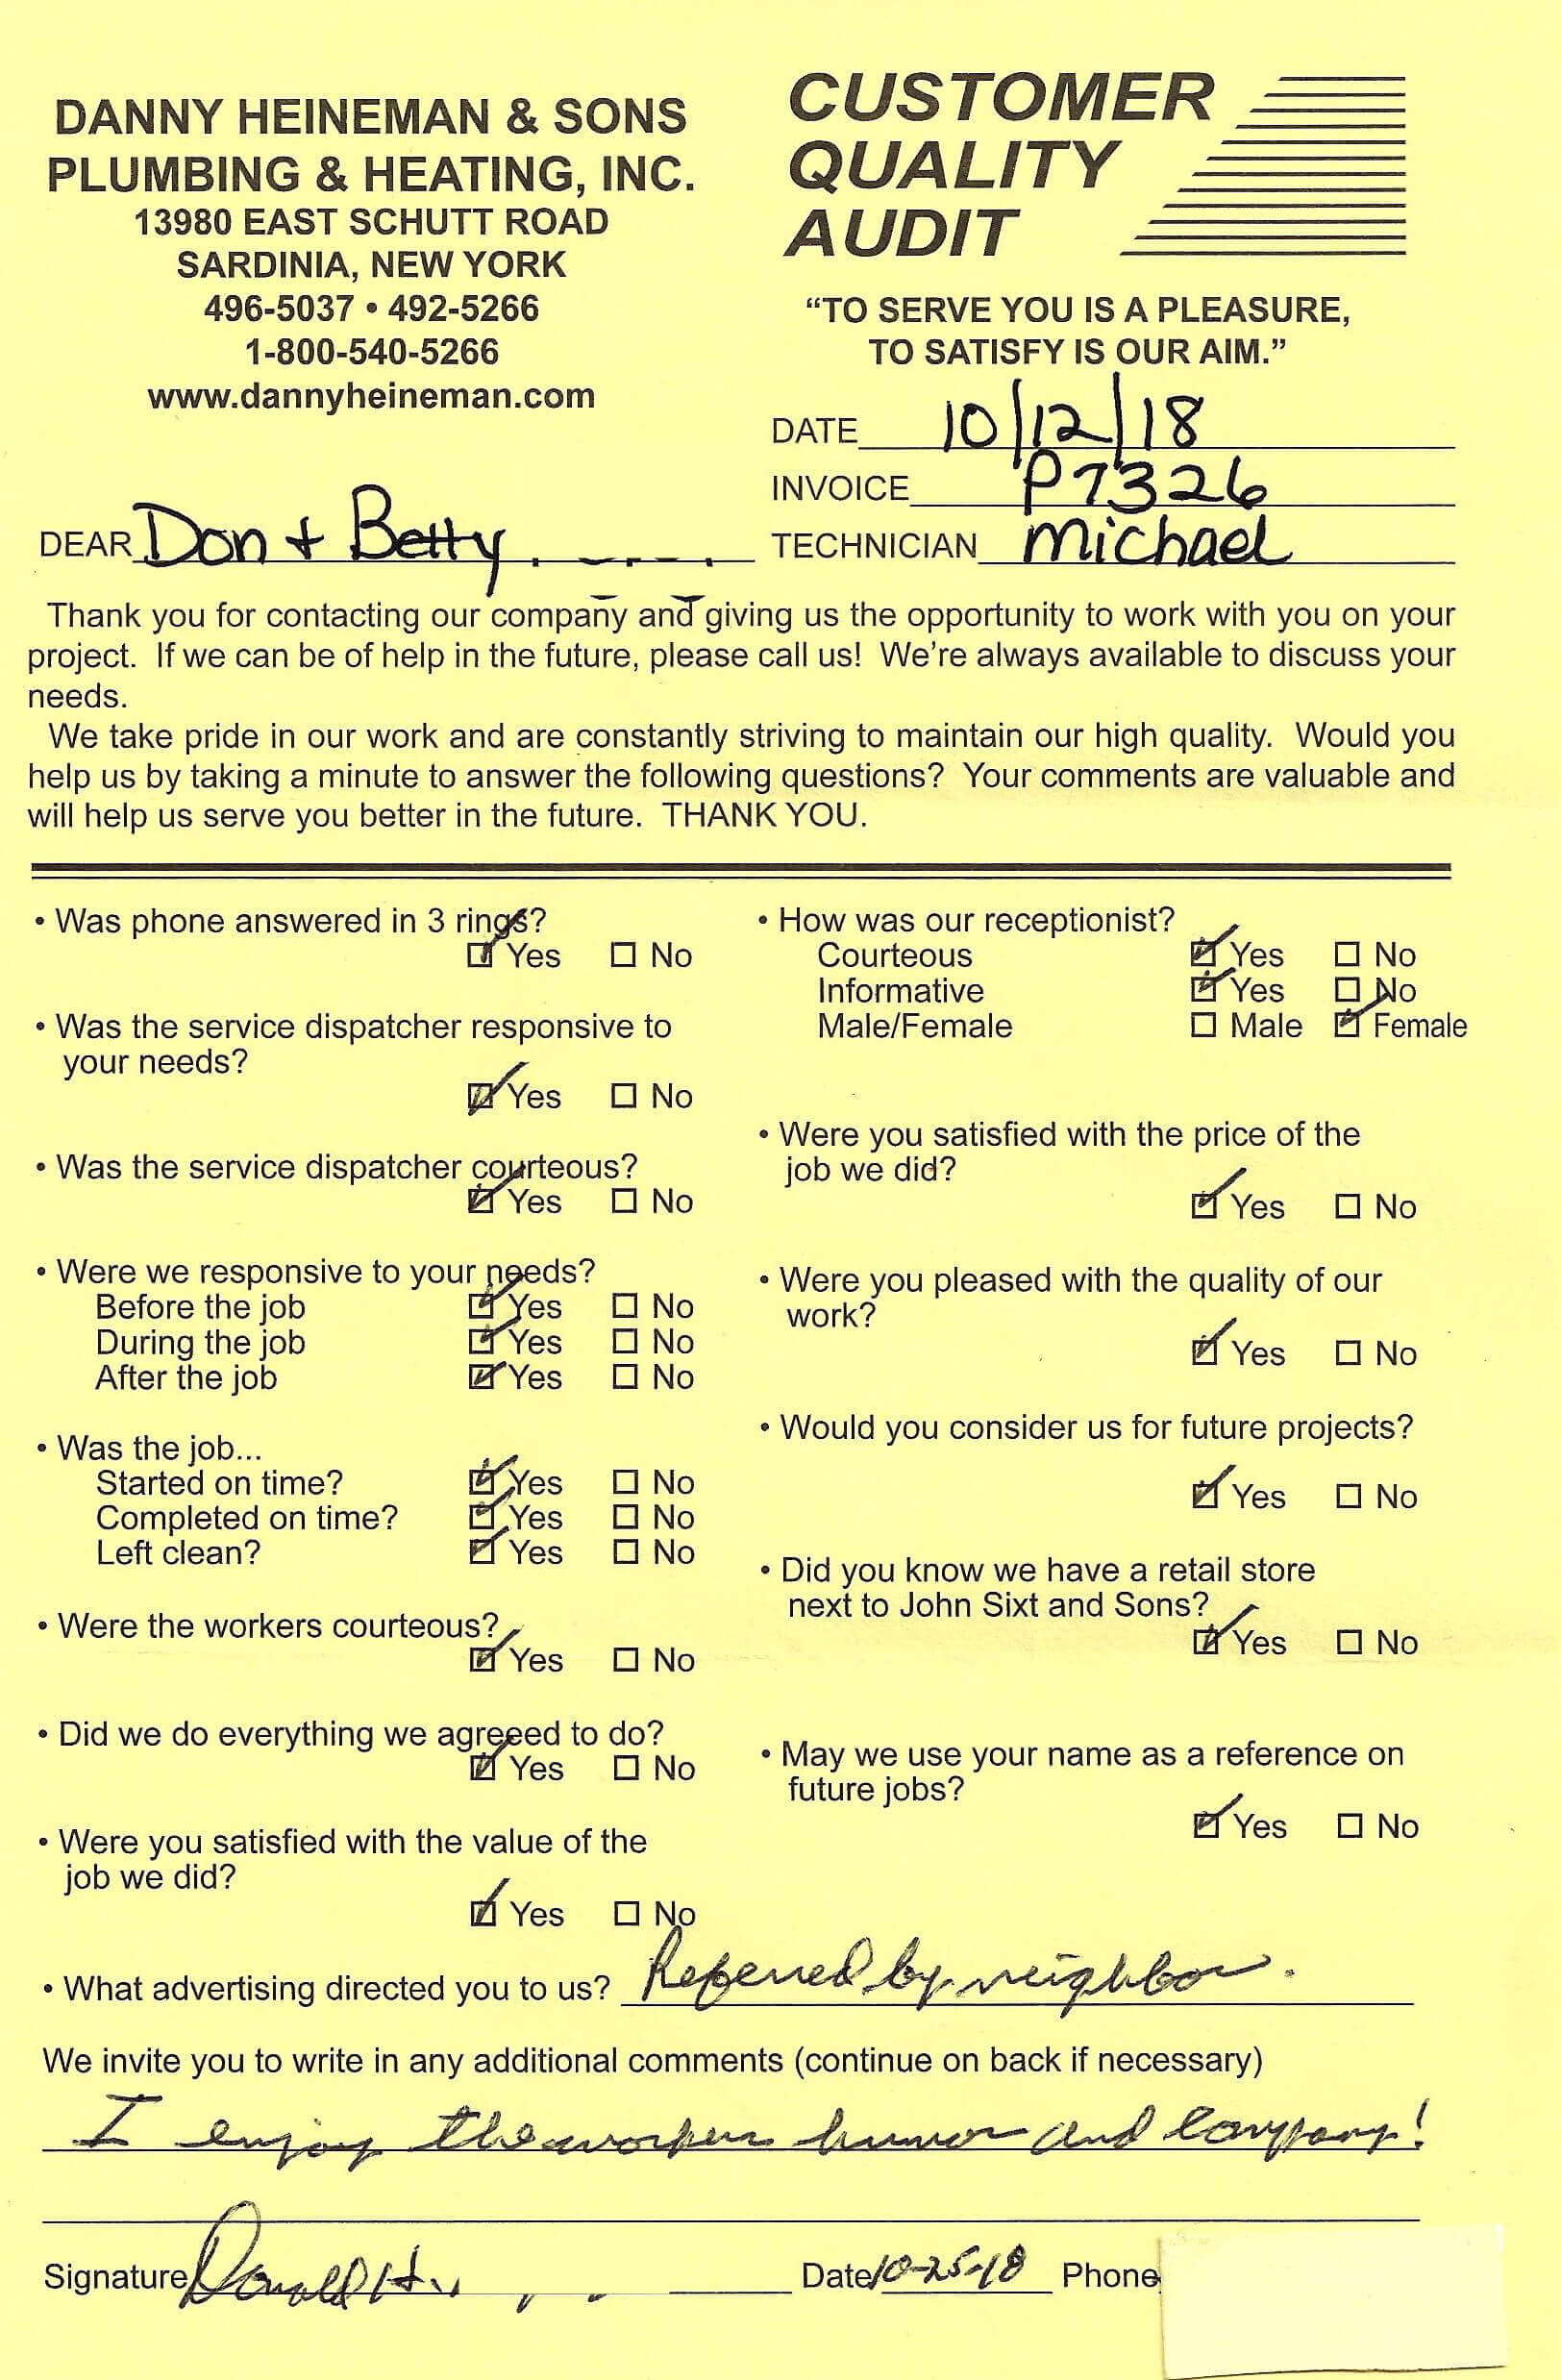 DANNY HEINEMAN & SONS
PLUMBING & HEATING, INC.
13980 EAST SCHUTT ROAD
SARDINIA, NEW YORK
496-5037 • 492-5266
1-800-540-5266
www.dannyheineman.com
CUSTOMER
QUALITY
AUDIT
“TO SERVE YOU IS A PLEASURE,
TO SATISFY IS OUR AIM.”
DATE 10/12/18
INVOICE P7326
DEAR Don + Betty
TECHNICIAN Michael
Thank you for contacting our company and giving us the opportunity to work with you on your
project. If we can be of help in the future, please call us! We’re always available to discuss your
needs.
We take pride in our work and are constantly striving to maintain our high quality. Would you
help us by taking a minute to answer the following questions? Your comments are valuable and
will help us serve you better in the future. THANK YOU.
• Was phone answered in 3 rings?
Yes No
• Was the service dispatcher responsive to
your needs?
Yes No
• Was the service dispatcher courteous?
Yes No
• Were we responsive to your needs?
Before the job Yes No
During the job Yes No
After the job Yes No
• Was the job...
Started on time? Yes No
Completed on time? Yes No
Left clean? Yes No
• Were the workers courteous?
Yes No
• Did we do everything we agreeed to do?
Yes No
• Were you satisfied with the value of the
job we did?
Yes No
• How was our receptionist?
Courteous Yes No
Informative Yes No
Male/Female Male Female
• Were you satisfied with the price of the
job we did?
Yes No
• Were you pleased with the quality of our
work?
Yes No
• Would you consider us for future projects?
Yes No
• Did you know we have a retail store
next to John Sixt and Sons?
Yes No
• May we use your name as a reference on
future jobs?
Yes No
• What advertising directed you to us? Referred by neighbor.
We invite you to write in any additional comments (continue on back if necessary)
I enjoy the workers humor and company!
Signature Donald H. Date 10-25-18 Phone